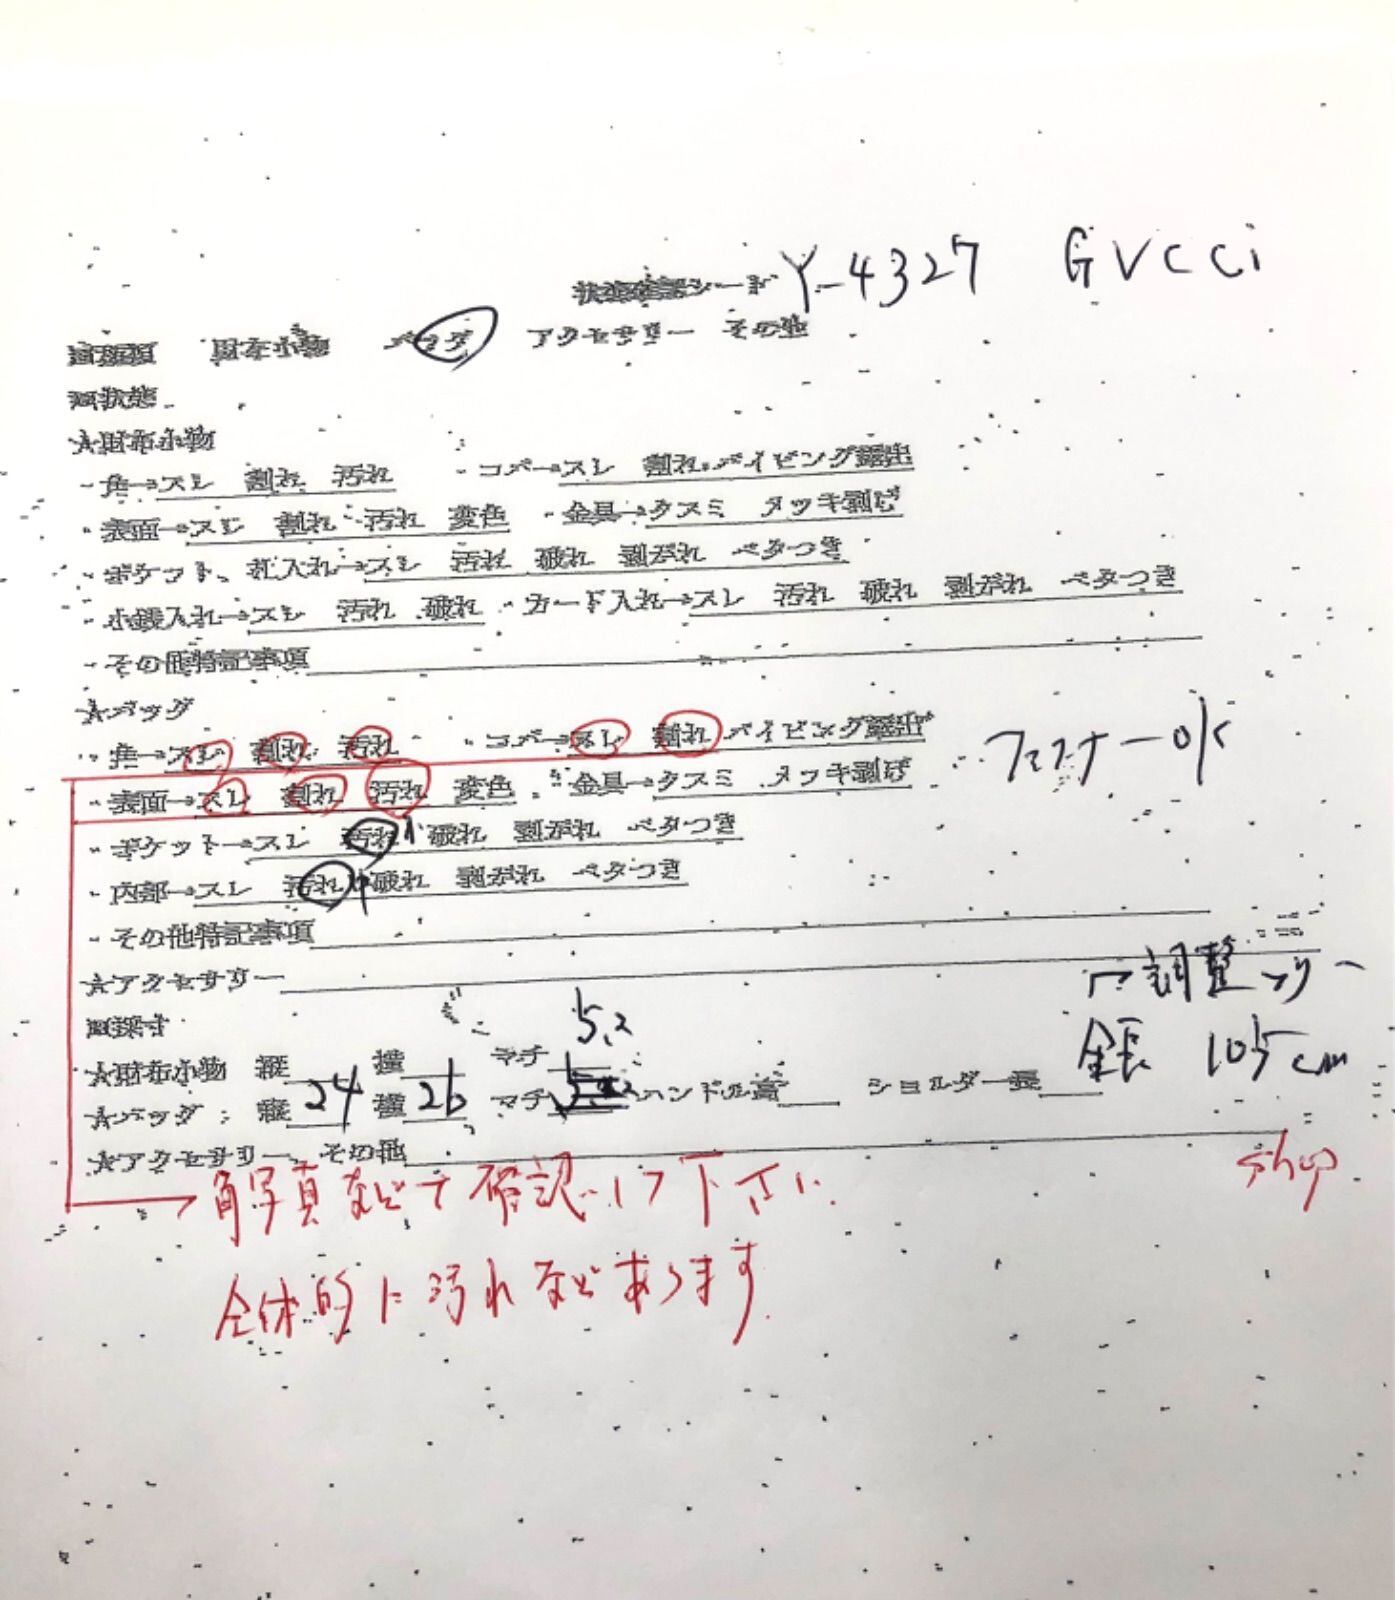 状態確認シート Y-4327 GVCCi
財布小物 バッグ アクセサリー その他
状態
★財布小物
・角→スレ 割れ 汚れ ・コバ→スレ 割れ パイピング露出
・表面→スレ 割れ 汚れ 変色 ・金具→クスミ メッキ剥げ
・ポケット、札入れ→スレ 汚れ 破れ 剥がれ ベタつき
・小銭入れ→スレ 汚れ 破れ ・カード入れ→スレ 汚れ 破れ 剥がれ ベタつき
・その他特記事項
★バッグ
・角→スレ 割れ 汚れ ・コバ→スレ 割れ パイピング露出
ファスナーok
・表面→スレ 割れ 汚れ 変色 ・金具→クスミ メッキ剥げ
・ポケット→スレ 汚れ 小 破れ 剥がれ ベタつき
・内部→スレ 汚れ 中 破れ 剥がれ ベタつき
・その他特記事項
★アクセサリー
調整フリー
採寸
5.2
全長 105cm
★財布小物 縦 横 マチ
★バッグ: 縦 24 横 26 マチ ハンドル高 ショルダー長
★アクセサリー、その他
shop
角写真などで確認して下さい.
全体的に汚れなどあります